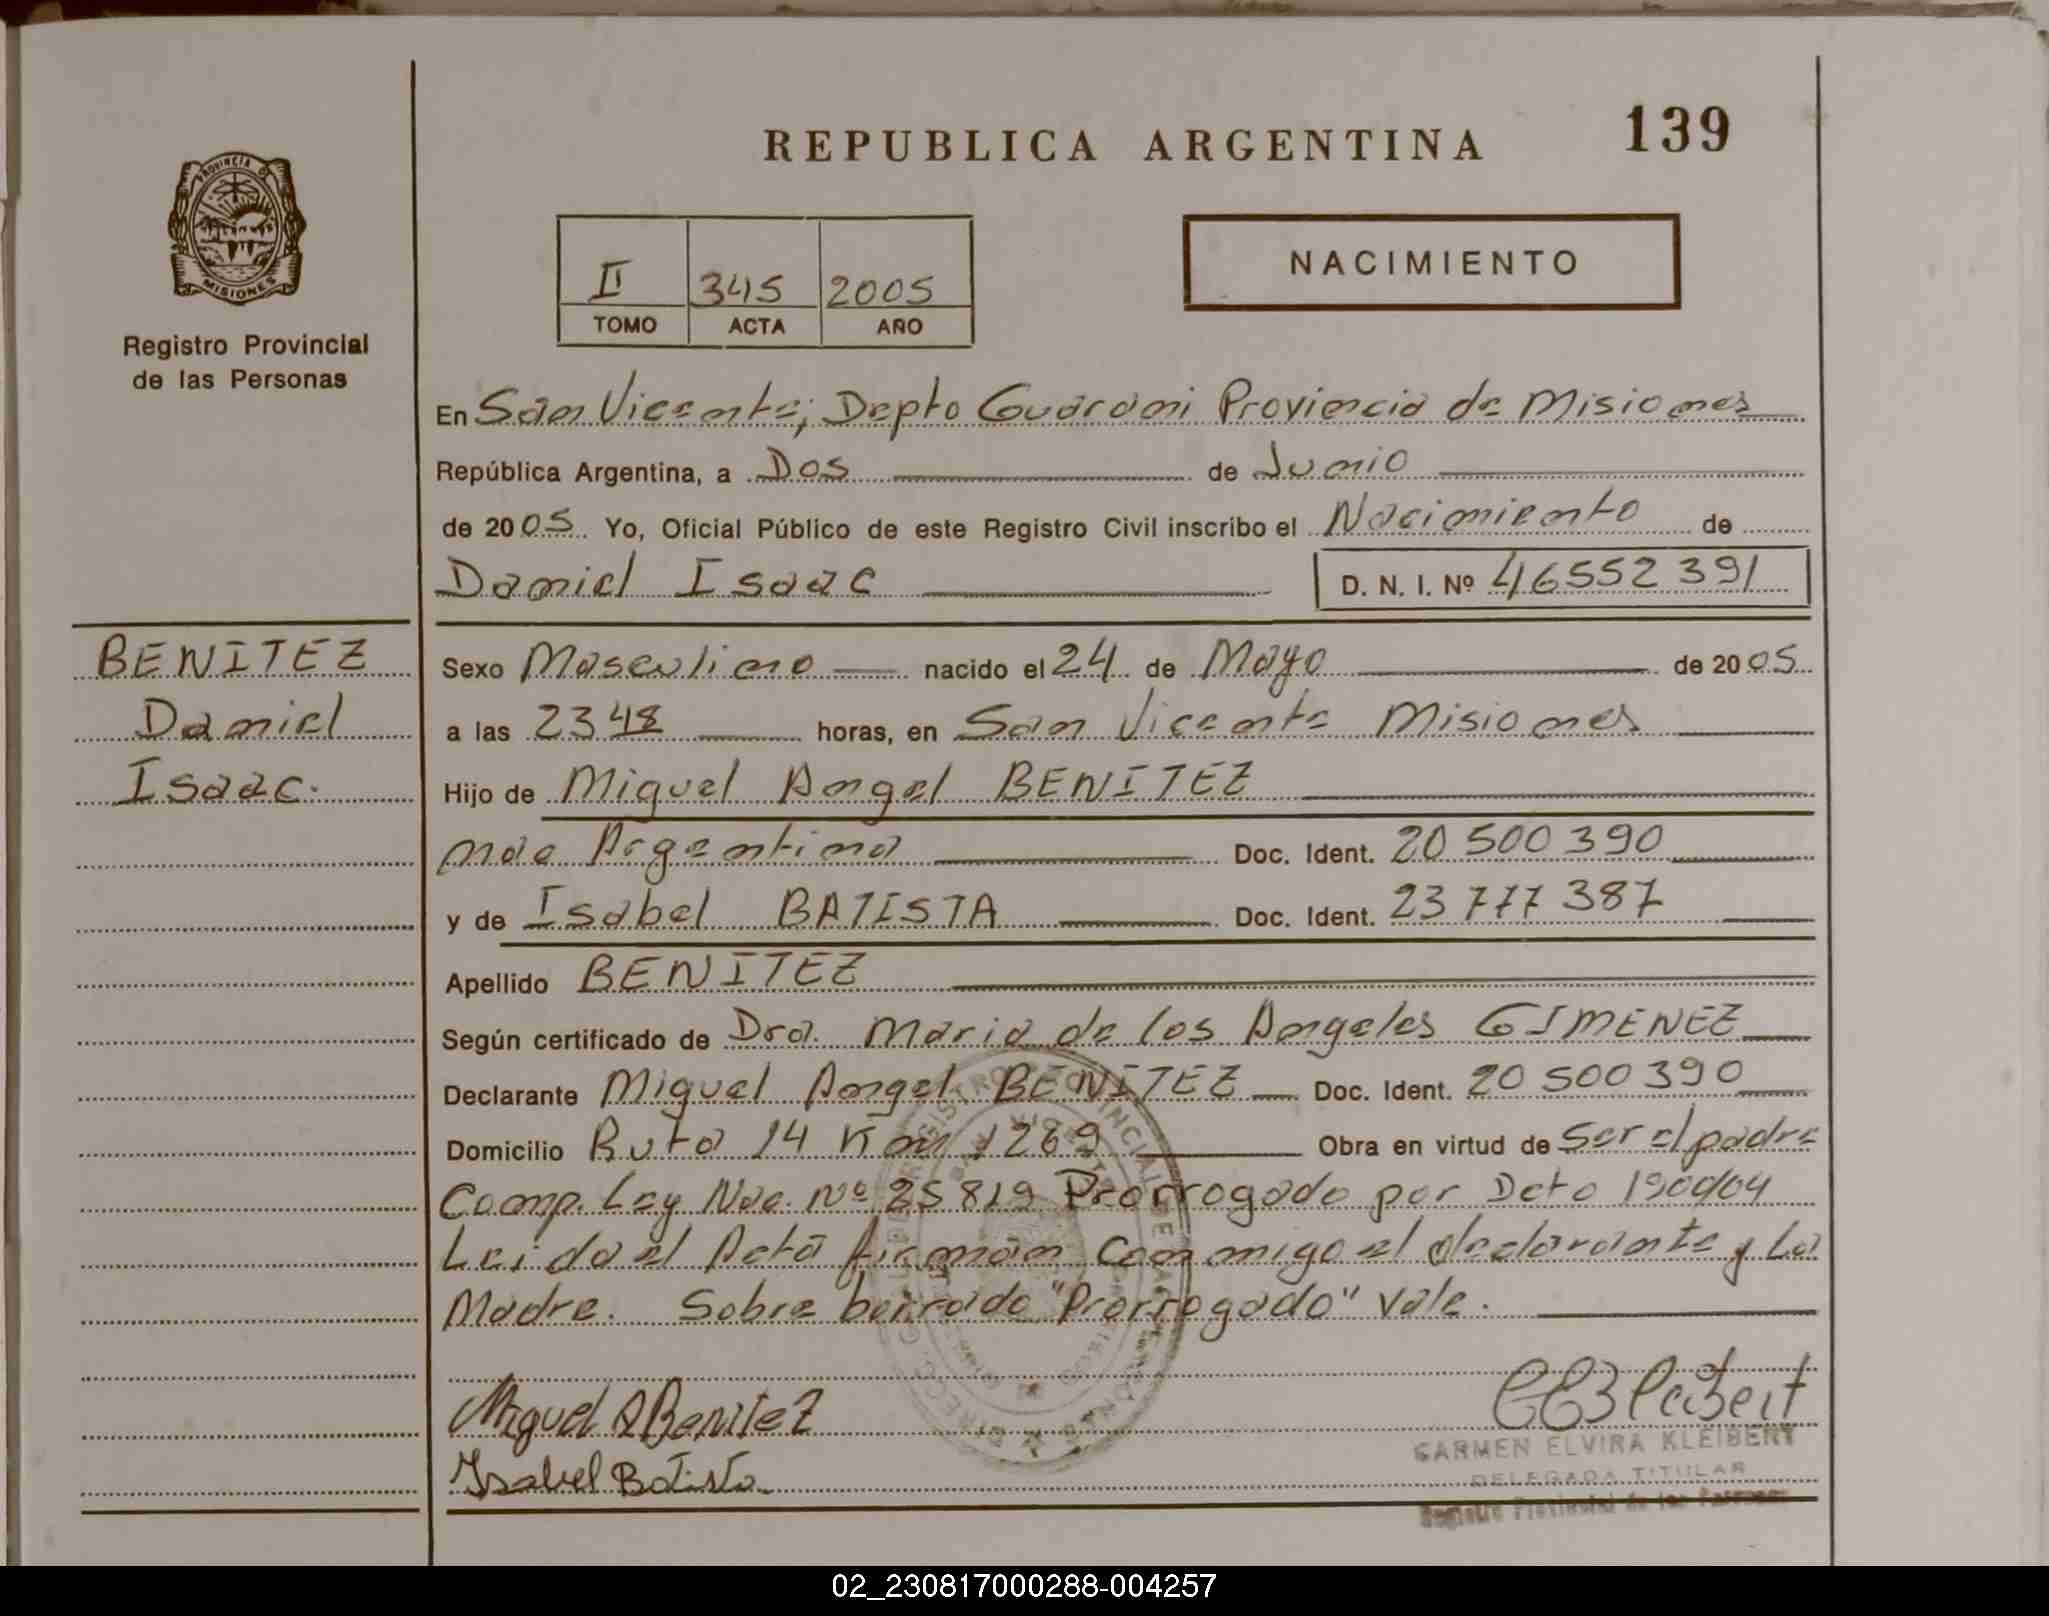 REPUBLICA ARGENTINA 139
PROVINCIA DE
MISIONES
Registro Provincial
de las Personas
NACIMIENTO
II 345 2005
TOMO ACTA AÑO
En San Vicente; Depto Guarani Provincia de Misiones
República Argentina, a Dos de Junio
de 2005 Yo, Oficial Público de este Registro Civil inscribo el Nacimiento de
Daniel Isaac D. N. I. Nº 46552391
BENITEZ
Daniel
Isaac.
Sexo Masculino nacido el 24 de Mayo de 2005
a las 23 48 horas, en San Vicente Misiones
Hijo de Miguel Angel BENITEZ
nac Argentina Doc. Ident. 20 500 390
y de Isabel BATISTA Doc. Ident. 23 777 387
Apellido BENITEZ
Según certificado de Dra. Maria de los Angeles GIMENEZ
Declarante Miguel Angel BENITEZ Doc. Ident. 20 500 390
Domicilio Ruta 14 Km 1269 Obra en virtud de Ser el padre
Comp. Ley Nac. Nº 25 819 Prorrogado por Dcto 1900/04
Leida el Acta firman conmigo el declarante y La
Madre. Sobre borrado "Prorrogado" vale.
Miguel A Benitez
Isabel Batista
CARMEN ELVIRA KLEIBERT
DELEGADA TITULAR
Registro Provincial de las Personas
02_230817000288-004257